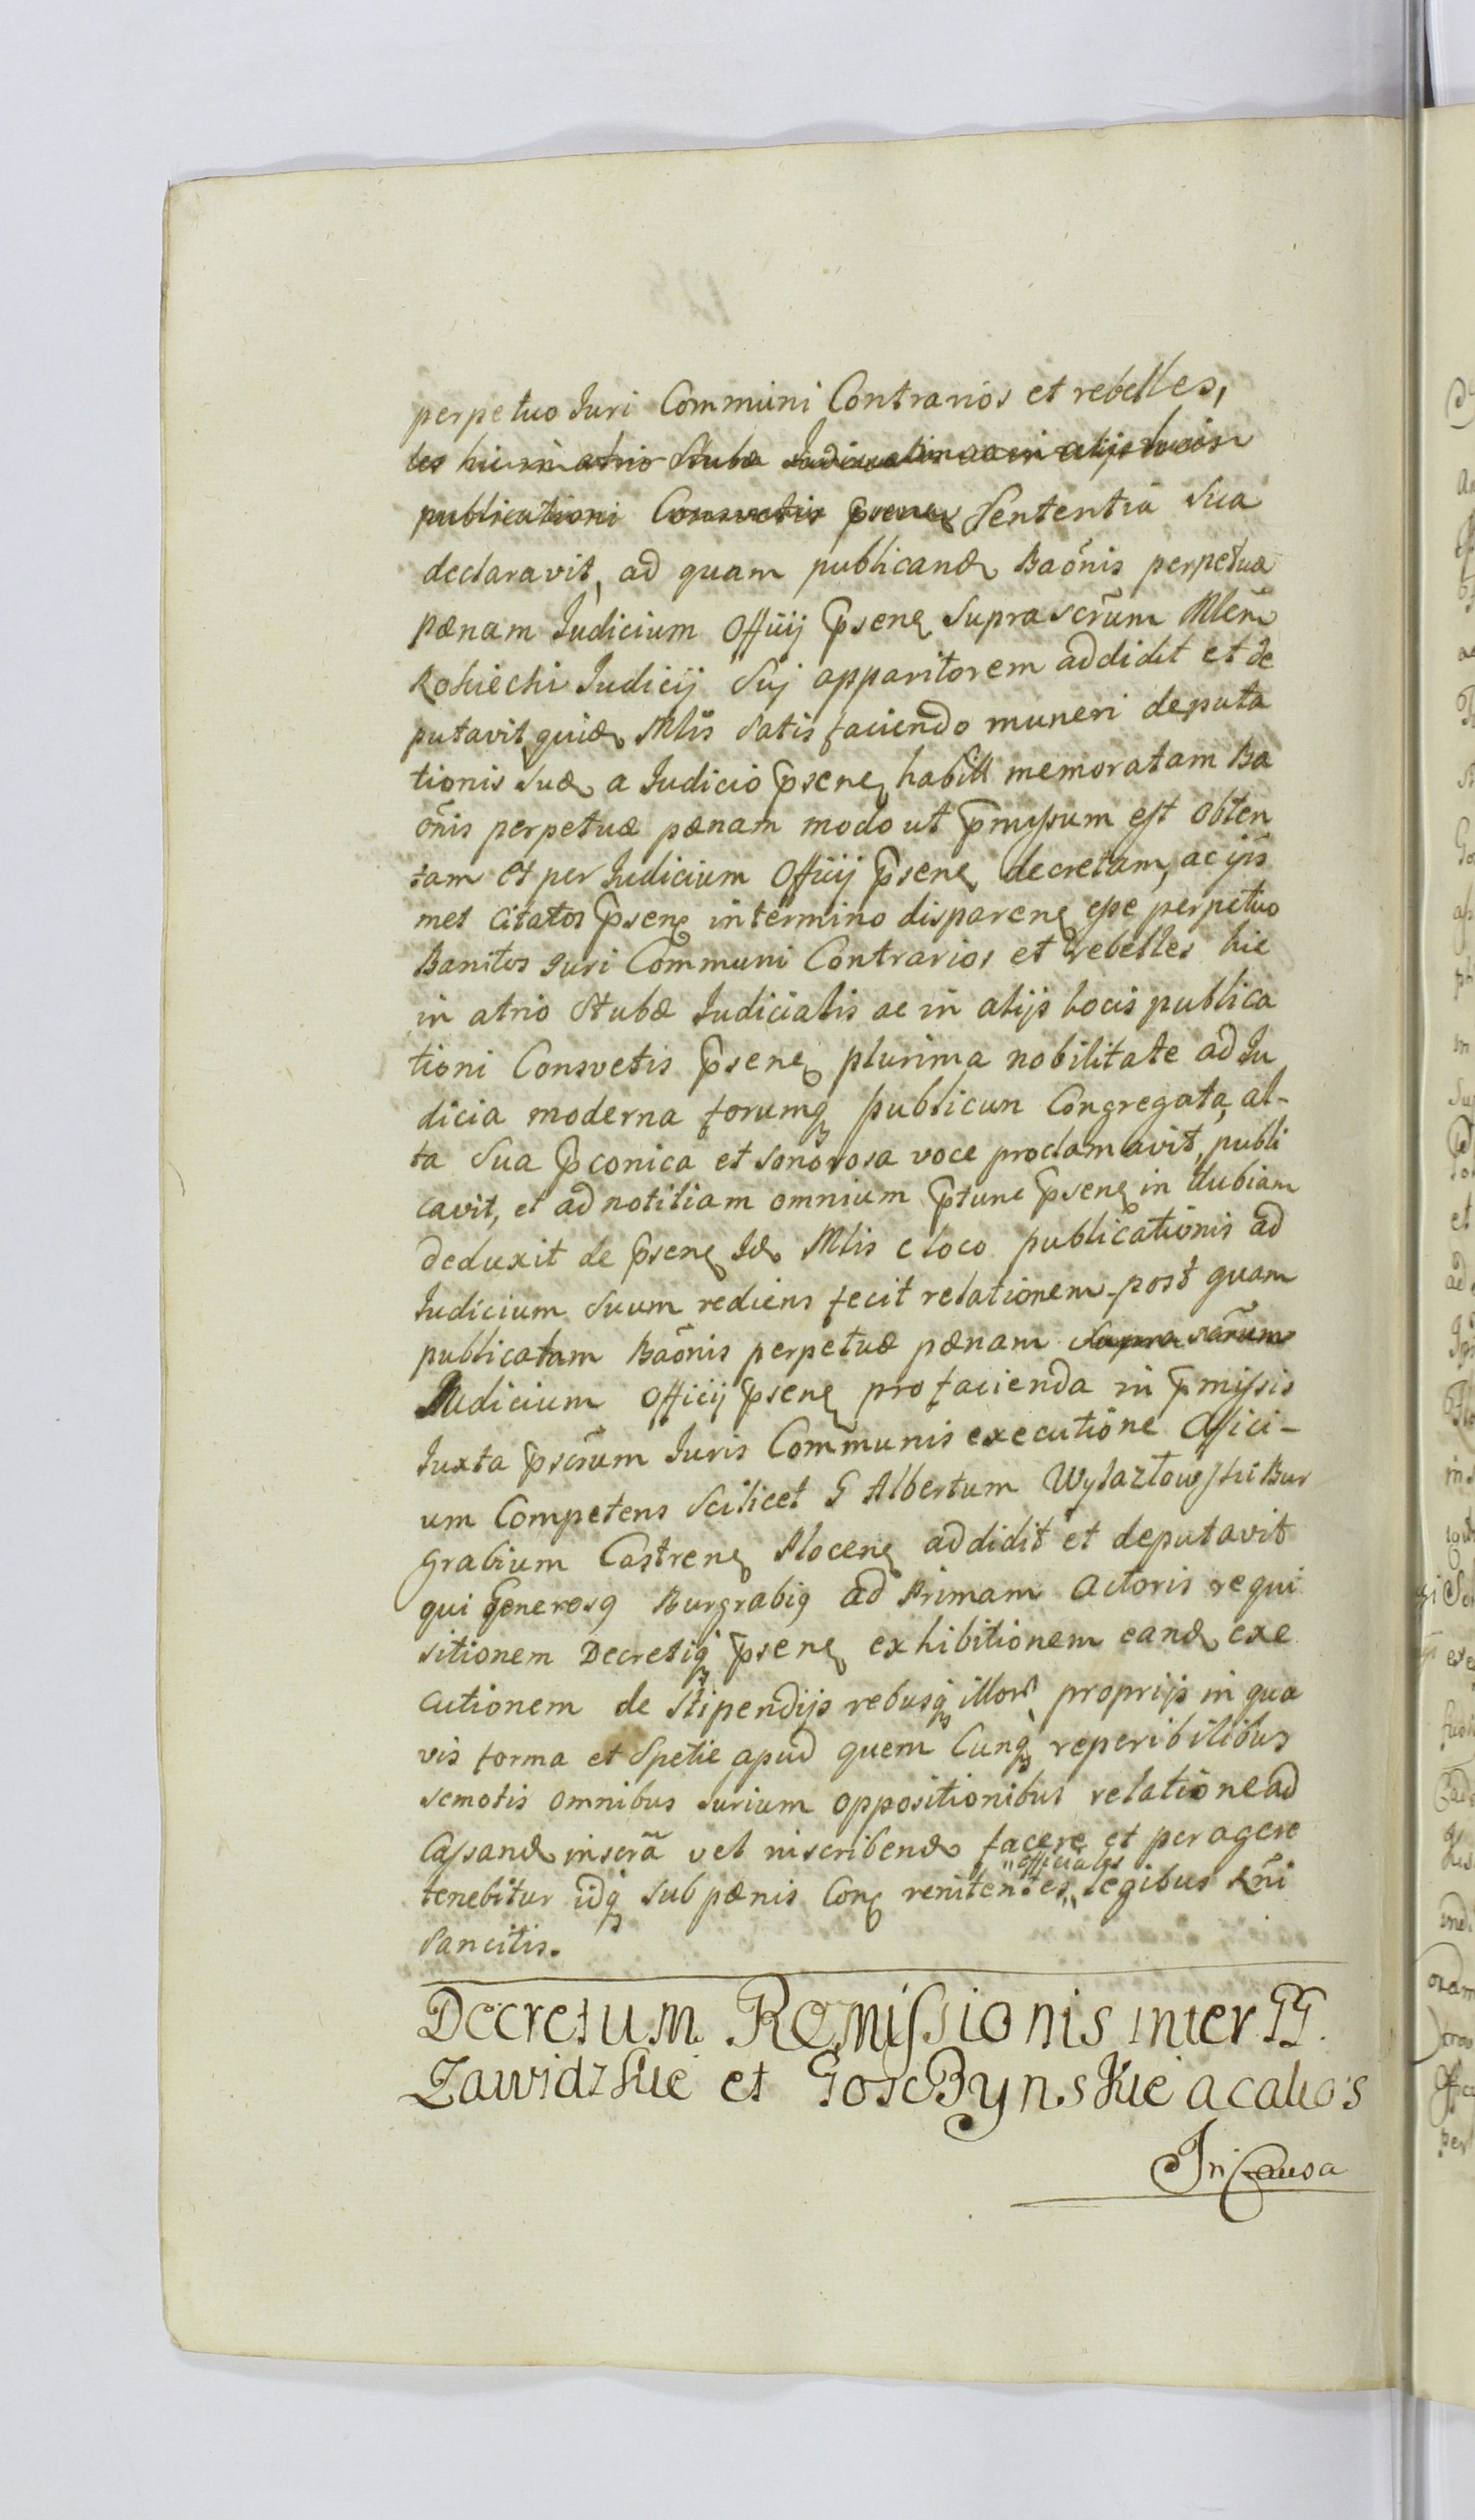 perpetuo Iuri Communi Contrarios et rebelles,
les hic in atrio Stubæ Iudicialis ac in alijs locis
publicationi Consvetis p̃senę Sententiâ Sua
declaravit, ad quam publicandę Baõnis perpetuæ
pænam Iudicium Officij p̃senę Suprascr̃um Mlem̃
Rokiechi Iudicij Sĳ apparitorem addidit et de
putavit, quidę Mlis̃ Satis faciendo muneri deputa
tionis Suæ a Iudicio p̃senę habitt memoratam Ba
õnis perpetuæ pænam modo ut p̃mißum est obten
tam et per Iudicium Officij p̃senę decretam, ac ijs̃
met Citatos p̃senę in termino disparenę eße perpetuo
Banitos Iuri Communi Contrarios et rebelles hic
in atrio Stubæ Iudicialis ac in alijs locis publica
tioni Consvetis p̃senę plurima nobilitate ad Iu
dicia moderna forumqꝫ publicum Congregata, al-
ta Sua p̃conica et sonorosa voce proclamavit, publi
cavit, et ad notitiam omnium p̃tunc p̃senę in dubiam
deduxit de p̃senę Idę Mlis e loco publicationis ad
Iudicium Suum rediens fecit relationem post quam
publicatam Baõnis perpetuæ pænam Supra scr̃um
Iudicium Officij p̃senę pro facienda in p̃mißis
Iuxta p̃scr̃um Iuris Communis executione Offici-
um Competens Scilicet G Albertum Wylaztowski Bur
grabium Castrenę Plocenę addidit et deputavit
qui Generosꝯ Burgrabiꝯ ad Primam Actoris requi
sitionem Decretiqꝫ p̃senę exhibitionem eandę exe
cutionem de Stipendijs rebusqꝫ illorꝫ proprijs in qua
vis forma et Spetie apud quem Cunqꝫ reperibilibus
semotis omnibus Iurium oppositionibus relatione ad
Cassandę inscrã vel inscribendę facere et peragere
"officiales
tenebitur idqꝫ Sub pænis Conę renitentes" legibus Rñi
Sancitis.
Decretum Remissionis inter GG.
Zawidzkie et Goscßynskie ac alios
In Causa